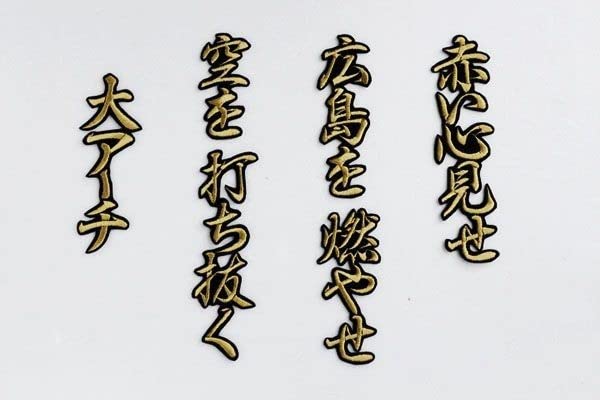 赤い心見せ
広島を燃やせ
空を打ち抜く
大アーチ